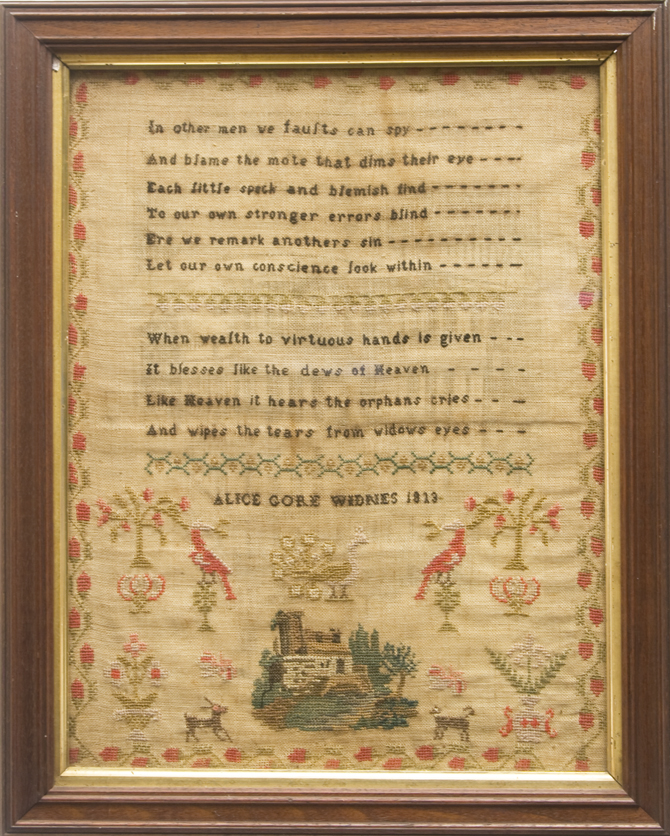 In other men we faults can spy - - - - - - - -
And blame the mote that dims their eye - - - -
Each little speck and blemish find - - - - - - -
To our own stronger errors blind - - - - - - -
Ere we remark anothers sin - - - - - - - - - -
Let our own conscience look within - - - - - -
When wealth to virtuous hands is given - - -
It blesses like the dews of Heaven - - - -
Like Heaven it hears the orphans cries - - -
And wipes the tears from widows eyes - - - -
ALICE GORE WIDNES 1819